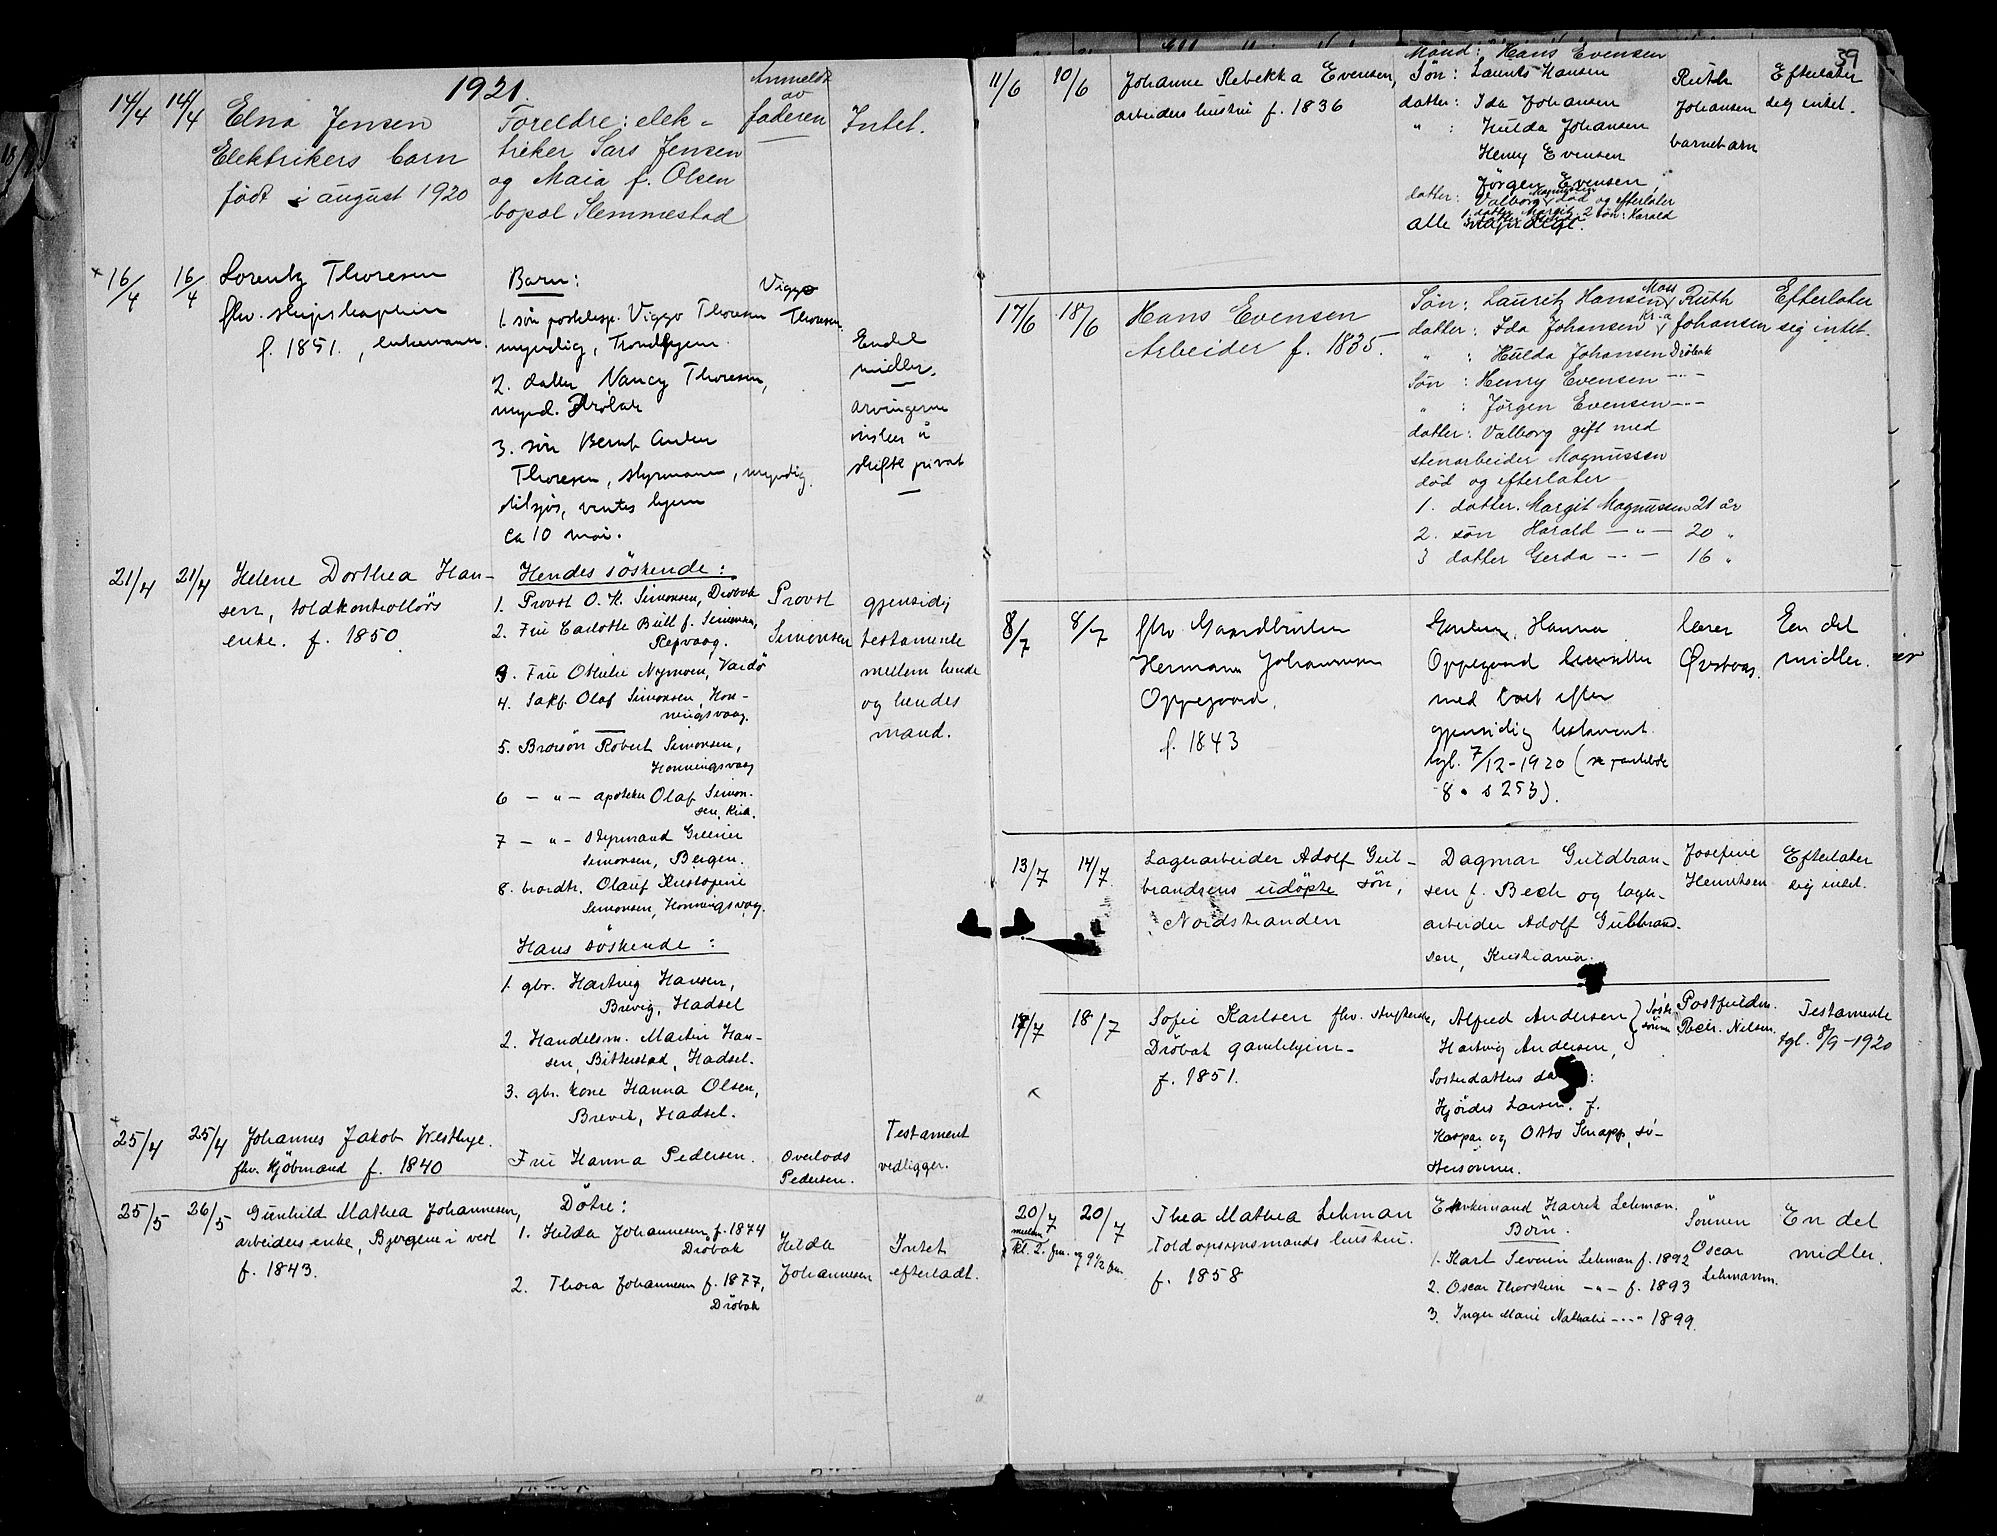 1921
Anmeldt
av
14/4 14/4 Elna Jensen
Elektrikers barn
født i august 1920
Foreldre: elek-
triker Lars Jensen
og Maia f. Olsen
bopæl Slemmestad
faderen
Intet.
16/4 16/4 Lorentz Thoresen
fhv. skipskaptein
f. 1851., enkemann.
Barn:
1. søn posteksp. Viggo Thoresen
myndig, Trondhjem.
2. datter Nancy Thoresen,
mynd. Drøbak
3. søn Bernt Anders
Thoresen, styrmann, myndig.
tilsjøs, ventes hjem
ca 10 mai.
Viggo
Thoresen.
Endel
midler.
arvingerne
ønsker å
skifte privat
21/4 21/4 Helene Dorthea Han-
sen, toldkontrollørs
enke. f. 1850.
Hendes söskende:
1. Provst O. K. Simonsen, Drøbak
2. Fru Carlotte Bull f. Simonsen,
Repvaag.
3. Fru Othelie Nymoen, Vardö
4. Sakf. Olaf Simonsen, Hon-
ningsvaag.
5. Brorsön Robert Simonsen,
Honningsvaag
6 — " — apoteker Olaf Simon-
sen, Kria.
7 — " — Styrmand
Simonsen, Bergen.
8. brordtr. Olauf Kristofine
Simonsen, Honningsvaag.
Hans söskende:
1. gbr. Hartvig Hansen,
Brevig, Hadsel
2. Handelsm. Martin Han-
sen, Bitterstad, Hadsel.
3. gbr. kone Hanna Olsen,
Brevik, Hadsel.
Provst
Simonsen
gjensidig
testamente
mellem hende
og hendes
mand.
25/4 25/4 Johannes Jakob Westbye.
fhv. Kjöbmand f. 1840
Fru Hanna Pedersen.
Overlods
Pedersen.
Testament
vedligger.
25/5 26/5 Gunhild Mathea Johannesen,
arbeiders enke, Bjergene i vest
f. 1843.
Dötre:
1. Hilda Johannesen f. 1874
Dröbak
2. Thora Johannesen f. 1877,
Dröbak
Hilda
Johannesen
Intet
efterladt.
39
11/6 10/6 Johanne Rebekka Evensen,
arbeiders hustru f. 1836
Mand: Hans Evensen
Søn: Laurits Hansen
datter: Ida Johansen
" : Hulda Johansen
Henry Evensen
Jörgen Evensen
datter: Valborg Magnussen død og efterlater
1 datter Margit 2 søn: Harald
alle myndige.
Ruth
Johansen
barnebarn
Efterlater
seg intet.
17/6 18/6 Hans Evensen
Arbeider f. 1835.
Søn: Lauritz Hansen Moss
datter: Ida Johansen Kr.a
" : Hulda Johansen Drøbak
Søn : Henry Evensen —"—
" : Jörgen Evensen —"—
datter: Valborg gift med
stenarbeider Magnussen
død og efterlater
1. datter. Margit Magnussen 21 år
2. søn Harald — " — 20 "
3 datter Gerda — " — 16 "
Ruth
Johansen
Efterlater
seg intet.
8/7 8/7 fhv. Gaardbruker
Hermann Johannesen
Oppegaard.
f. 1843
Hanna
Oppegaard
med boet efter
gjensidig testament.
tgl. 7/12-1920 (se pantebok
8. s 253).
lærer
Øvstaas.
En del
midler.
13/7 14/7. Lagerarbeider Adolf Gul-
brandsens udöpte søn,
Nordstranden
Dagmar Guldbran-
sen f. Bech og lager-
arbeider Adolf Gulbrand-
sen, Kristiania.
Josefine
Henriksen
Efterlater
sig intet.
18/7 18/7 Sofie Karlsen fhv.
Dröbak gamlehjem.
f. 1851.
Alfred Andersen
Hartvig Andersen,
Søsterdatters
Hjördis Larsen f.
Kaspar og Otto Knapp, sø-
stersønner.
Postfuldm.
Nilsen.
Testamente
tgl. 8/9-1920
20/7 20/7 Thea Mathea Lehman
Toldopsynsmands hustru.
f. 1858
mellem
kl. 2. fm. og 9 1/2 fm.
Enkemand Henrik Lehman.
Börn.
1. Karl Severin Lehman f. 1892
2. Oscar Thorstein — " — f. 1893
3. Inger Marie Nathalie — " — 1899.
Sönnen
Oscar
Lehmann.
En del
midler.